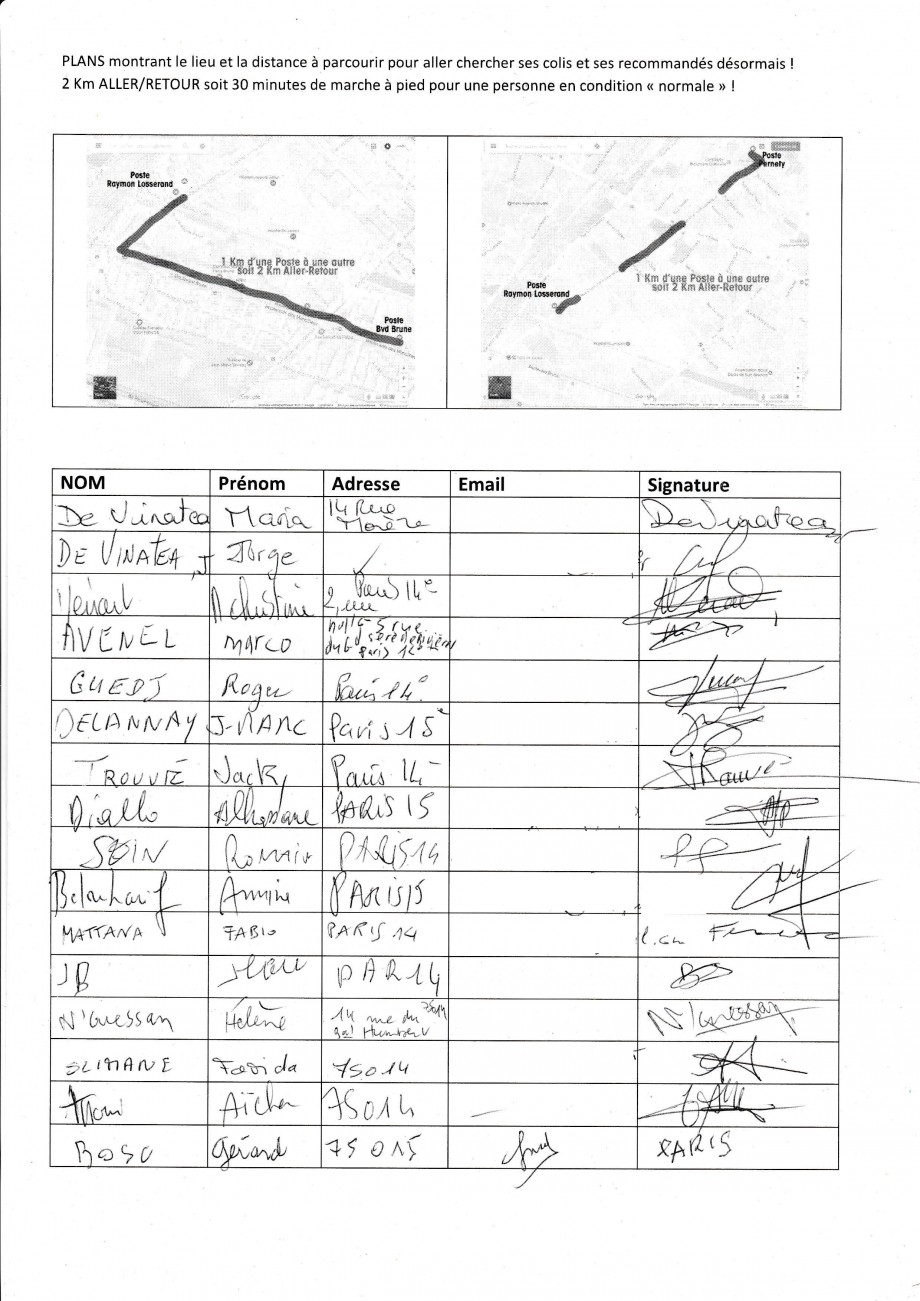 PLANS montrant le lieu et la distance à parcourir pour aller chercher ses colis et ses recommandés désormais !
2 Km ALLER/RETOUR soit 30 minutes de marche à pied pour une personne en condition « normale » !
Poste
Raymon Losserand
1 Km d'une Poste à une autre
soit 2 Km Aller-Retour
Poste
Bvd Brune
Poste
Pernety
1 Km d'une Poste à une autre
soit 2 Km Aller-Retour
Poste
Raymon Losserand
NOM Prénom Adresse Email Signature
De Vinatea Maria 14 Rue Morère DeVinatea
DE VINATEA J Jorge
Christine 2, rue Paris 14e
AVENEL Marco 5 rue Paris 14
GUEDJ Roger Paris 14e
DELANNAY J-MARC Paris 15e
TROUVÉ Jacky Paris 14
Diallo Alhassane PARIS 15
Romain PARIS 14
Amine PARIS 15
MATTANA FABIO PARIS 14
JB PAR 14
N'Guessan Hélène 14 rue du gal Humbert 75014 N'Guessan
SLIMANE Farida 75014
Aicha 75014
BOSC Gérard 75015 PARIS